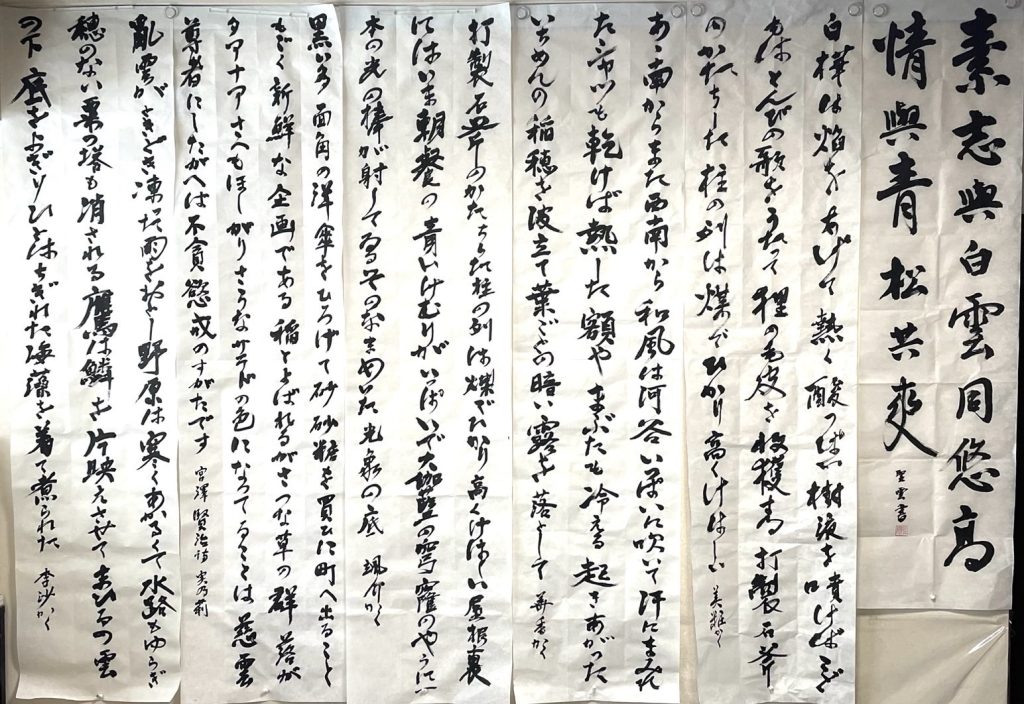 素志與白雲同悠高
情與青松共爽
聖雲書
白樺は焰をあげて熱く酸っぱい樹液を噴けばこど
もはとんびの歌をうたって狸の毛皮を收穫す 打製石斧
のかたちした柱の列は煤でひかり高くけはしい 美雅かく
あゝ南からまた西南から和風は河谷いっぱいに吹いて汗にまみれ
たシャツも乾けば熱した額やまぶたも冷える 起きあがった
いちめんの稲穂を波立て葉ごとの暗い露を落として 華香かく
打製石斧のかたちした柱の列は煤でひかり高くけはしい屋根裏
にはいま朝餐の青いけむりがいっぱいで大伽藍の穹窿のやうに一
本の光の棒が射してゐるそのなまめいた光象の底 颯介かく
黒いろの面角の洋傘をひろげて砂砂糖を買ひに町へ出ることも
ごく新鮮な企画である 稲とよばれるがさつな草の群落が
タアナアさへもほしがりさうなサラドの色になってることは慈雲
尊者にしたがへば不貪慾戒のすがたです 宮澤賢治詩 実乃莉
亂雲がぎざぎざ凍った雨をおとし野原は寒くあかるくて水路もゆらぎ
穂のない粟の塔も消される 鷹は鱗を片映えさせてまひるの雲
の下底をよぎりひとはちぎれた海藻を着て煮られた 李沙かく